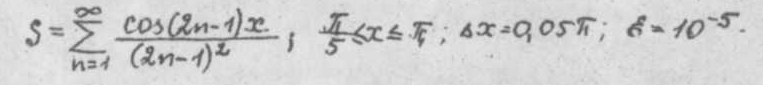 S = \sum_{n=1}^{\infty} \frac{\cos(2n-1)x}{(2n-1)^2}; \frac{\pi}{5} \le x \le \pi; \Delta x = 0,05\pi; \varepsilon = 10^{-5}.